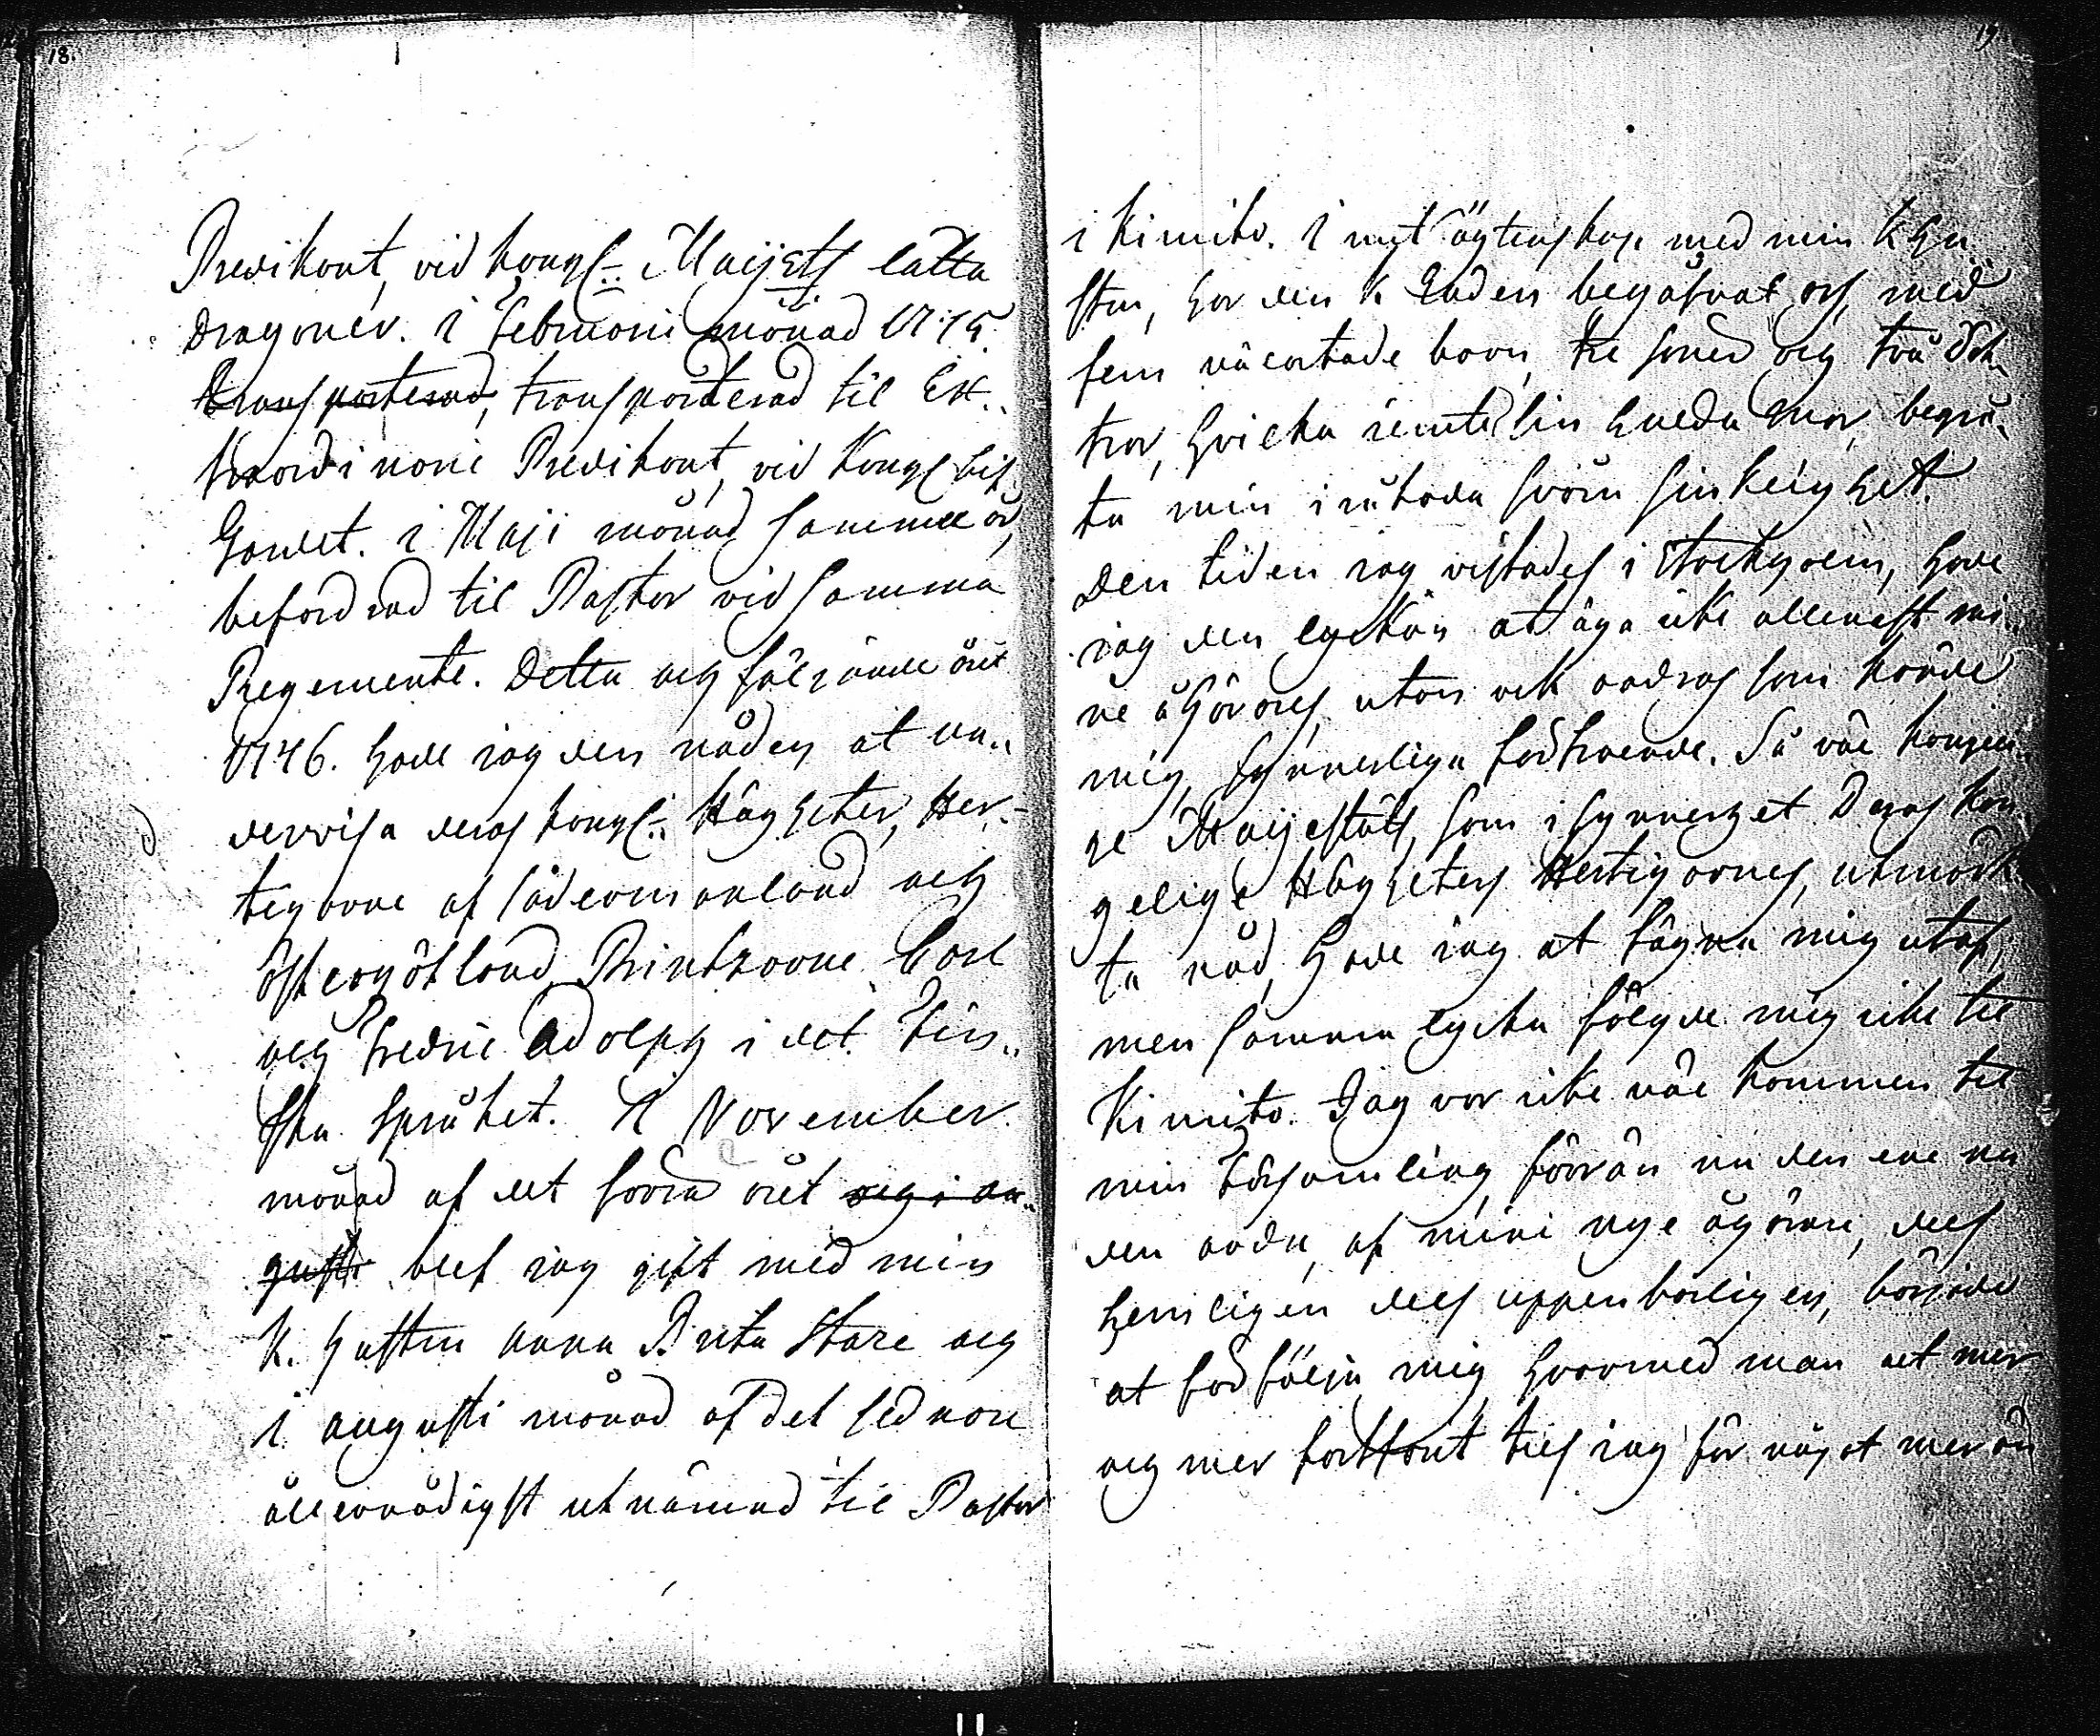 18.
Predikant, vid kongl:. Maijets lätta
Dragoner. i Februarii mônad 1775.
transporterad, transporterad til Ex..
traordinarie Predikant, vid Kongl. Lif
Gardet. i Maji mônad samma år,
befordrad til Pastor vid samma
Regemente. Detta och följande året
1776. hade jag den nåden at un..
dervisa deras kongl:. Högheter, Her-
tigarne af Södermanland och
Östergötland, Printzarne Carl
och Fredric Adolph i det Fin..
ska språket. I November
mônad af det förra året och i au..
gusti blef jag gift med min
K. hustru Anna Brita Stare och
i augusti mônad af det sednare
allernådigst utnämnd til Pastor
19
i Kimito. I mit ägtenskap med min K hu
stru, har den k Guden begåfvat oss med
fem välartade barn, tre söner och två döt..
trar, hvilka jemte sin hulda Mor, begrå..
ta min i råkade svåra sinkeighet.
Den tiden jag vistades i Stockholm, hade
jag den lyckan at äga icke allenast mi..
ne åhörares, utan ock andras som kände
mig, synnerliga förtroende. Så väl konun
ge Maijestäts, som i synnerhet Deras kon
gelige Högheters Hertigarnes, utmärk
ta nåd, hade jag at fägna mig utaf,
men samma lycka fölgde mig icke til
Kimito. Jag var icke väl kommen til
min församling, förrän nu den ene nu
den andra, af mine nye åhörare, dels
hemligen dels uppenbarligen, började
at förfölja mig, hvarmed man alt mer
och mer fortfor, tils jag för något mer än